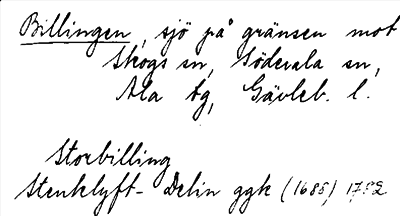 Billingen, sjö på gränsen mot
Skogs sn, Söderala sn,
Ala tg, Gävleb. l.
Storbilling
Stenklyft- Delin ggk (1688) 1782